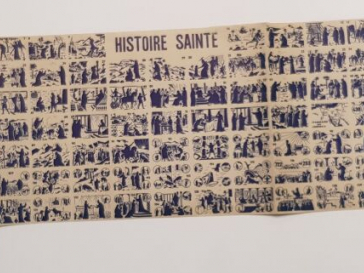 HISTOIRE SAINTE